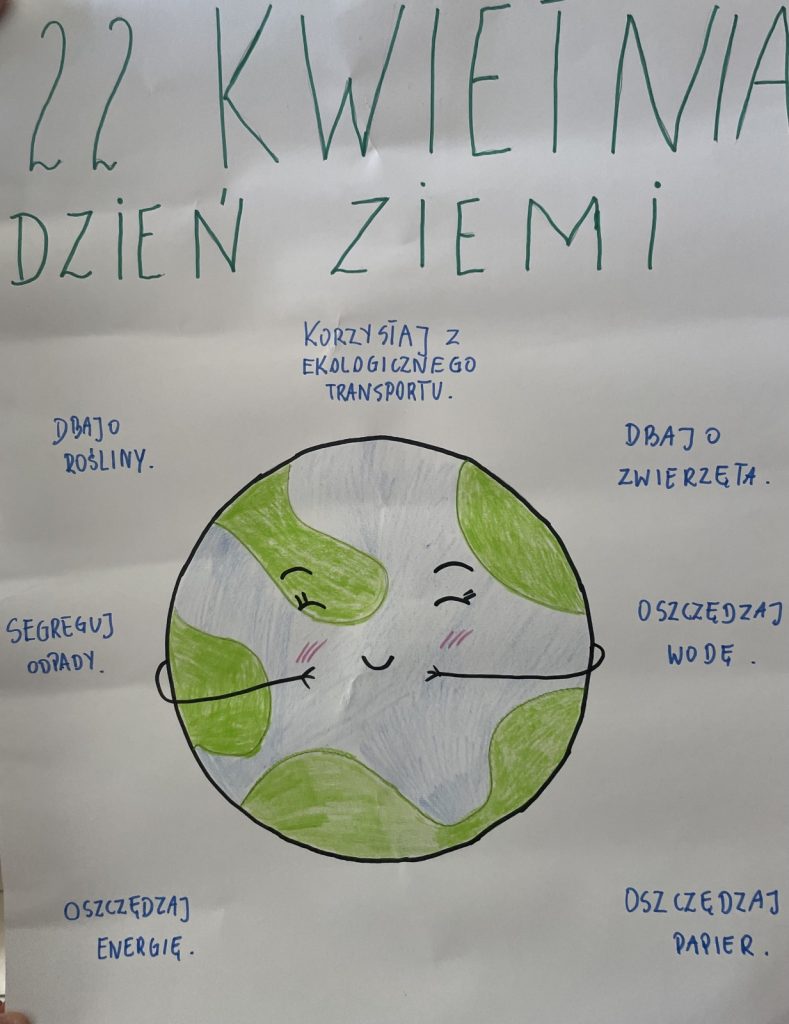 22 KWIETNIA
DZIEŃ ZIEMI
KORZYSTAJ Z
EKOLOGICZNEGO
TRANSPORTU.
DBAJ O
ROŚLINY.
DBAJ O
ZWIERZĘTA.
SEGREGUJ
ODPADY.
OSZCZĘDZAJ
WODĘ.
OSZCZĘDZAJ
ENERGIĘ.
OSZCZĘDZAJ
PAPIER.